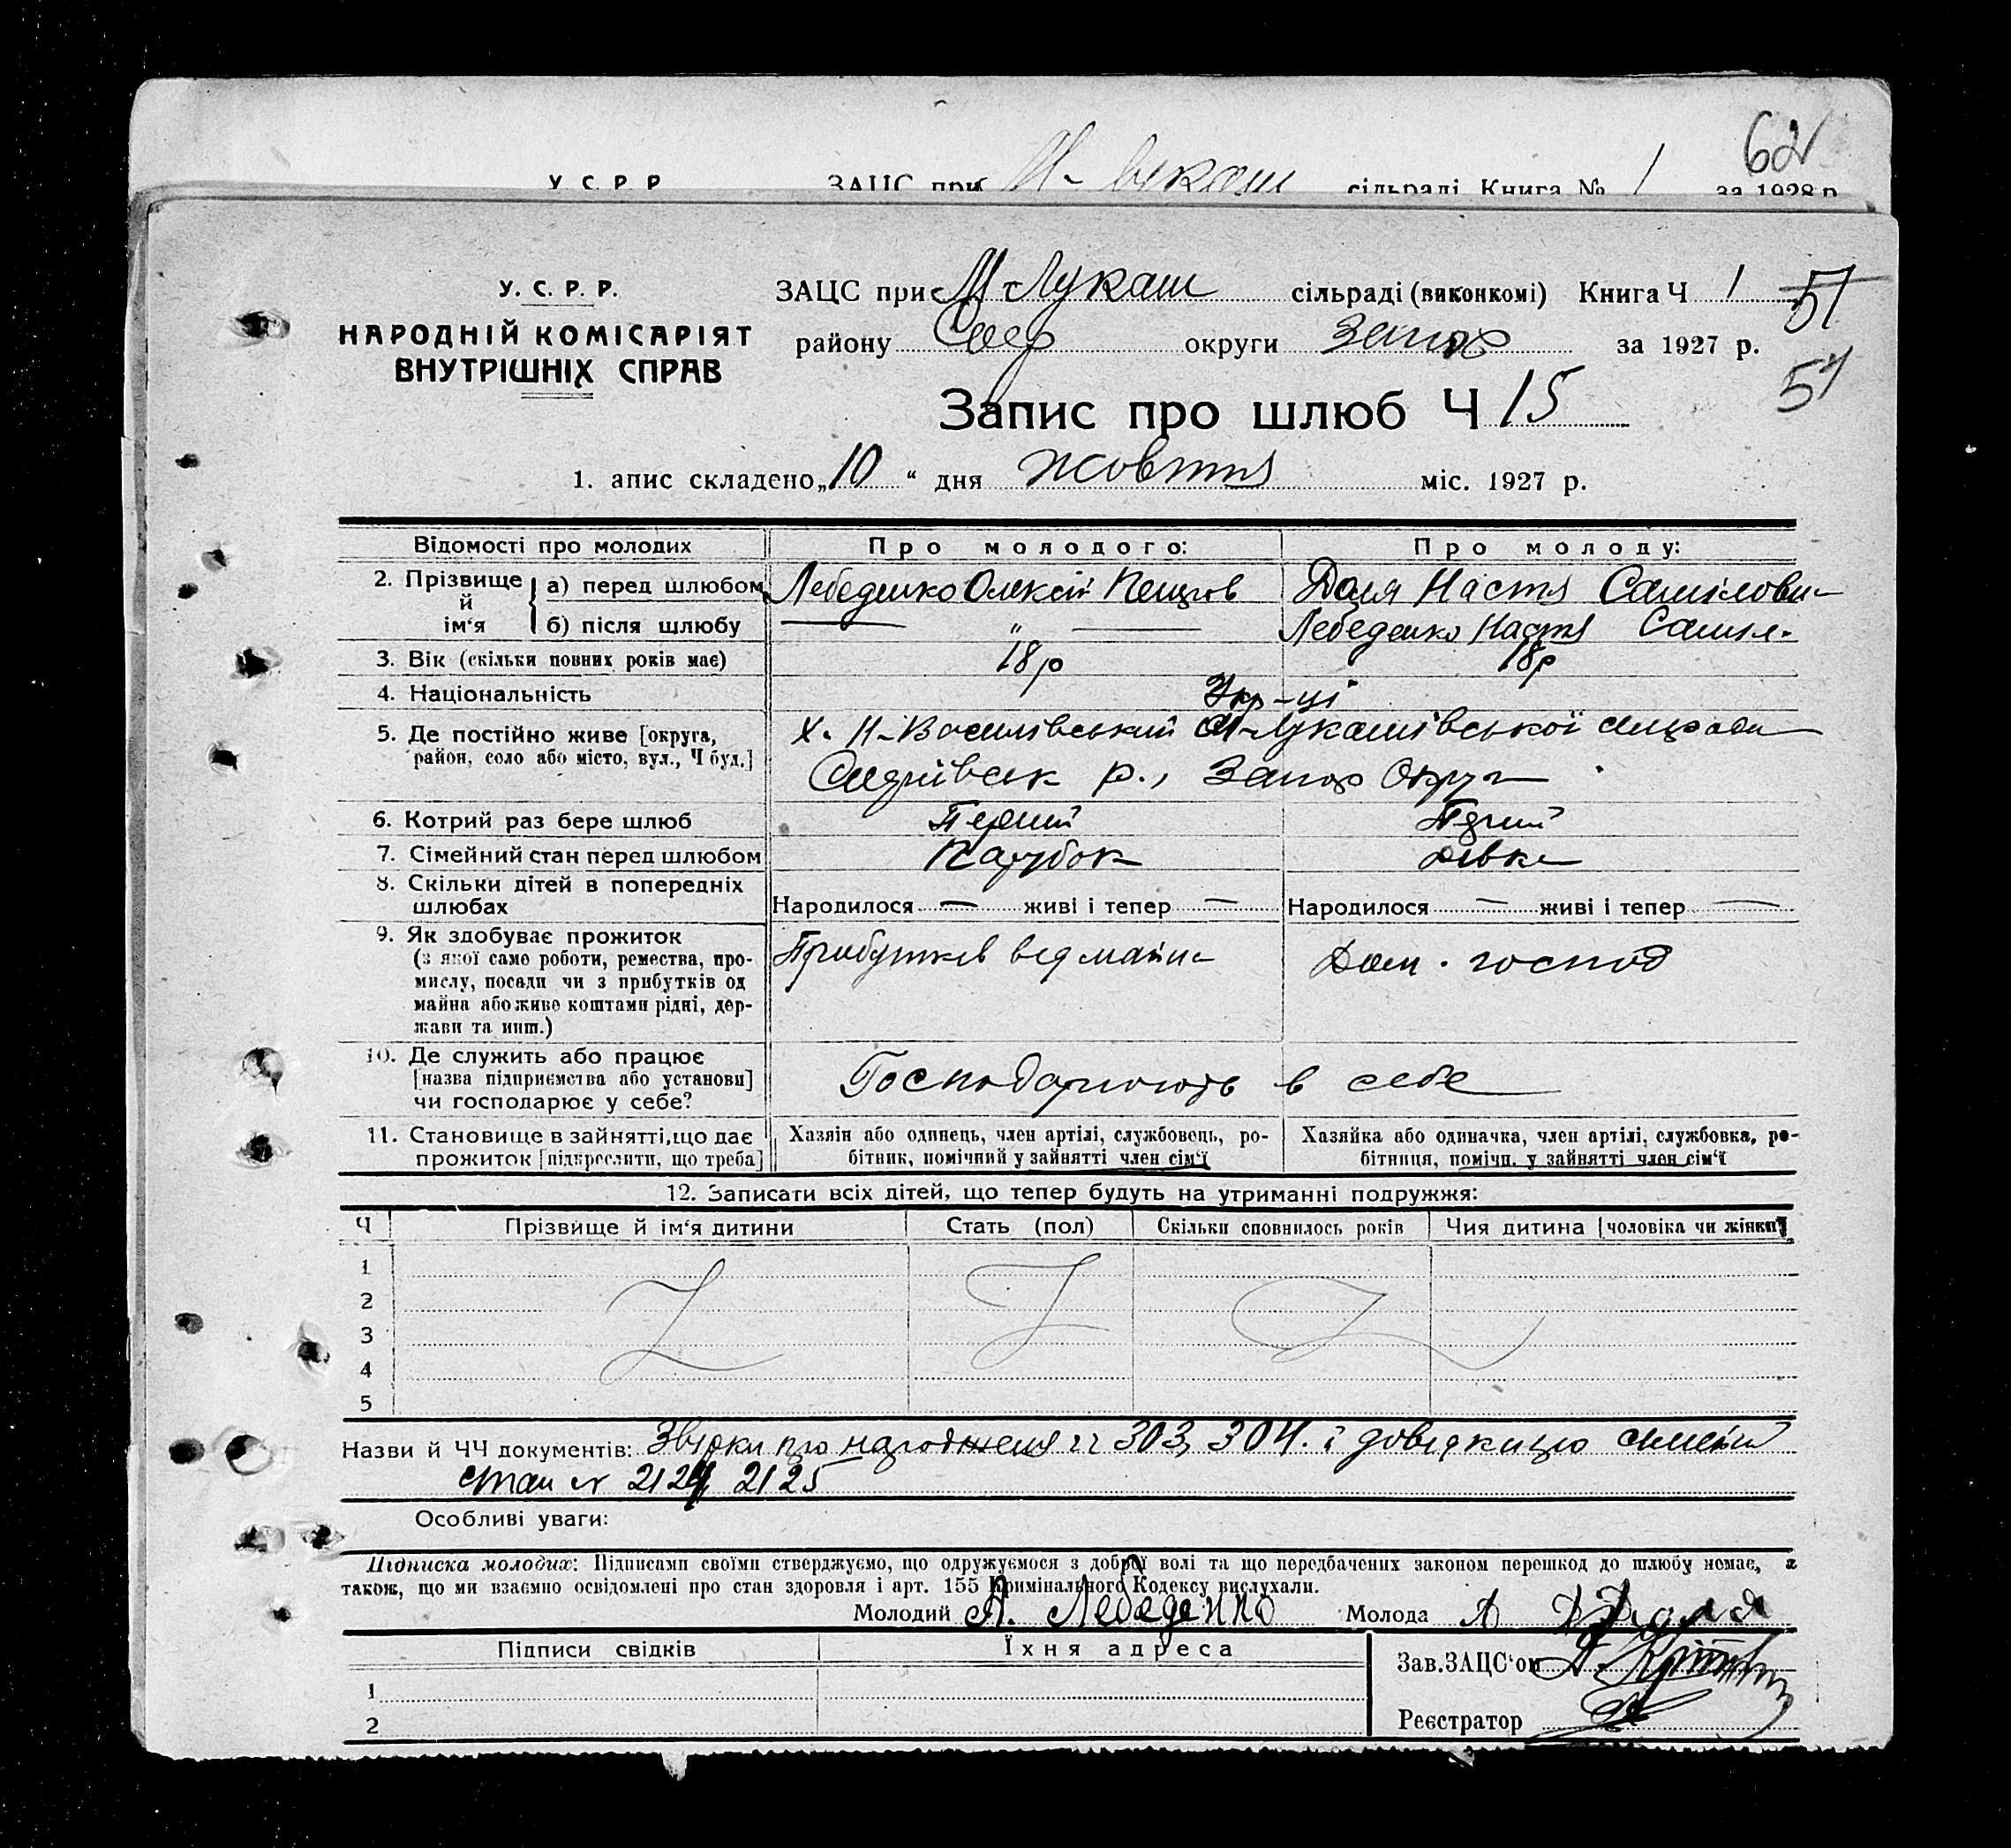 62
У. С. Р. Р. ЗАЦС при сільраді Книга № 1 за 1928 р.
У. С. Р. Р.
НАРОДНІЙ КОМІСАРІЯТ
ВНУТРІШНІХ СПРАВ
ЗАЦС при М-Лукаш сільраді (виконкомі) Книга Ч 1
51
району округи Запор за 1927 р.
51
Запис про шлюб Ч 15
1. апис складено „10“ дня жовтня міс. 1927 р.
Відомості про молодих Про молодого: Про молоду:
2. Прізвище й ім‘я а) перед шлюбом Лебеденко Олексій Петров Доля Настя Самілови-
б) після шлюбу — „ — Лебеденко Настя Саміл.
3. Вік (скільки повних років має) 18р 18р
4. Національність Укр-ці
5. Де постійно живе [округа, район, село або місто, вул., Ч буд.] Х. Н-Василівський М-Лукашівської сільради
р., Запор Округи
6. Котрий раз бере шлюб Перший Перший
7. Сімейний стан перед шлюбом Парубок Дівка
8. Скільки дітей в попередніх шлюбах Народилося — живі і тепер — Народилося — живі і тепер —
9. Як здобуває прожиток
(з якої саме роботи, ремества, про-
мислу, посади чи з прибутків од
майна або живе коштами рідні, дер-
жави та инш.)
Прибутків від майна
Дом. господ
10. Де служить або працює
[назва підприємства або установи]
чи господарює у себе?
Господарюють в себе
11. Становище в зайнятті, що дає
прожиток [підкреслити, що треба]
Хазяїн або одинець, член артілі, службовець, ро-
бітник, помічний у зайнятті член сім‘ї
Хазяйка або одиначка, член артілі, службовка, ро-
бітниця, помічн. у зайнятті член сім‘ї
12. Записати всіх дітей, що тепер будуть на утриманні подружжя:
Ч Прізвище й ім‘я дитини Стать (пол) Скільки сповнилось років Чия дитина [чоловіка чи жінки]
1
2
3
4
5
Назви й ЧЧ документів: про народження 303, 304. і
стан 2124, 2125
Особливі уваги:
Підписка молодих: Підписами своїми стверджуємо, що одружуємося з доброї волі та що передбачених законом перешкод до шлюбу немає, а
також, що ми взаємно освідомлені про стан здоровля і арт. 155 Кримінального Кодексу вислухали.
Молодий А. Лебеденко Молода Доля
Підписи свідків Їхня адреса
Зав. ЗАЦС‘ом
1
Реєстратор
2